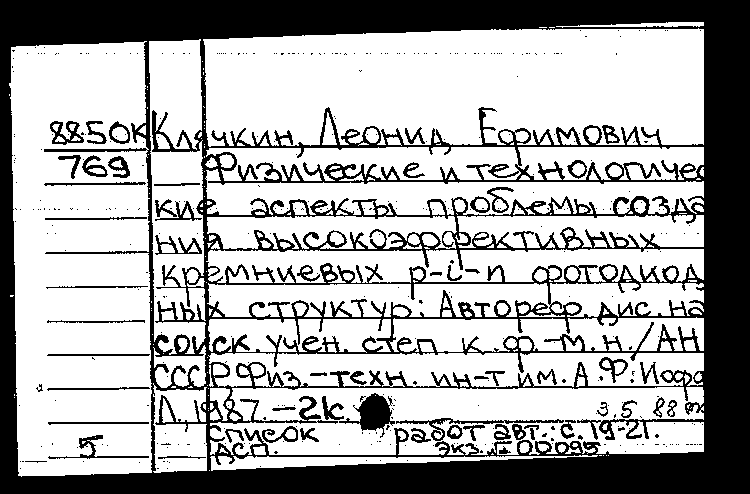 8850К Клячкин, Леонид Ефимович
769 Физические и технологичес
кие аспекты проблемы созда
ния высокоэффективных
кремниевых p-i-n фотодиод
ных структур: Автореф. дис. на
соиск. учен. степ. к. ф.-м. н. / АН
СССР, Физ.-техн. ин-т им. А.Ф. Иоффе
Л., 1987. - 21с.
3.5 88
список работ авт.: с. 19-21.
5 ДСП. экз. № 00095.